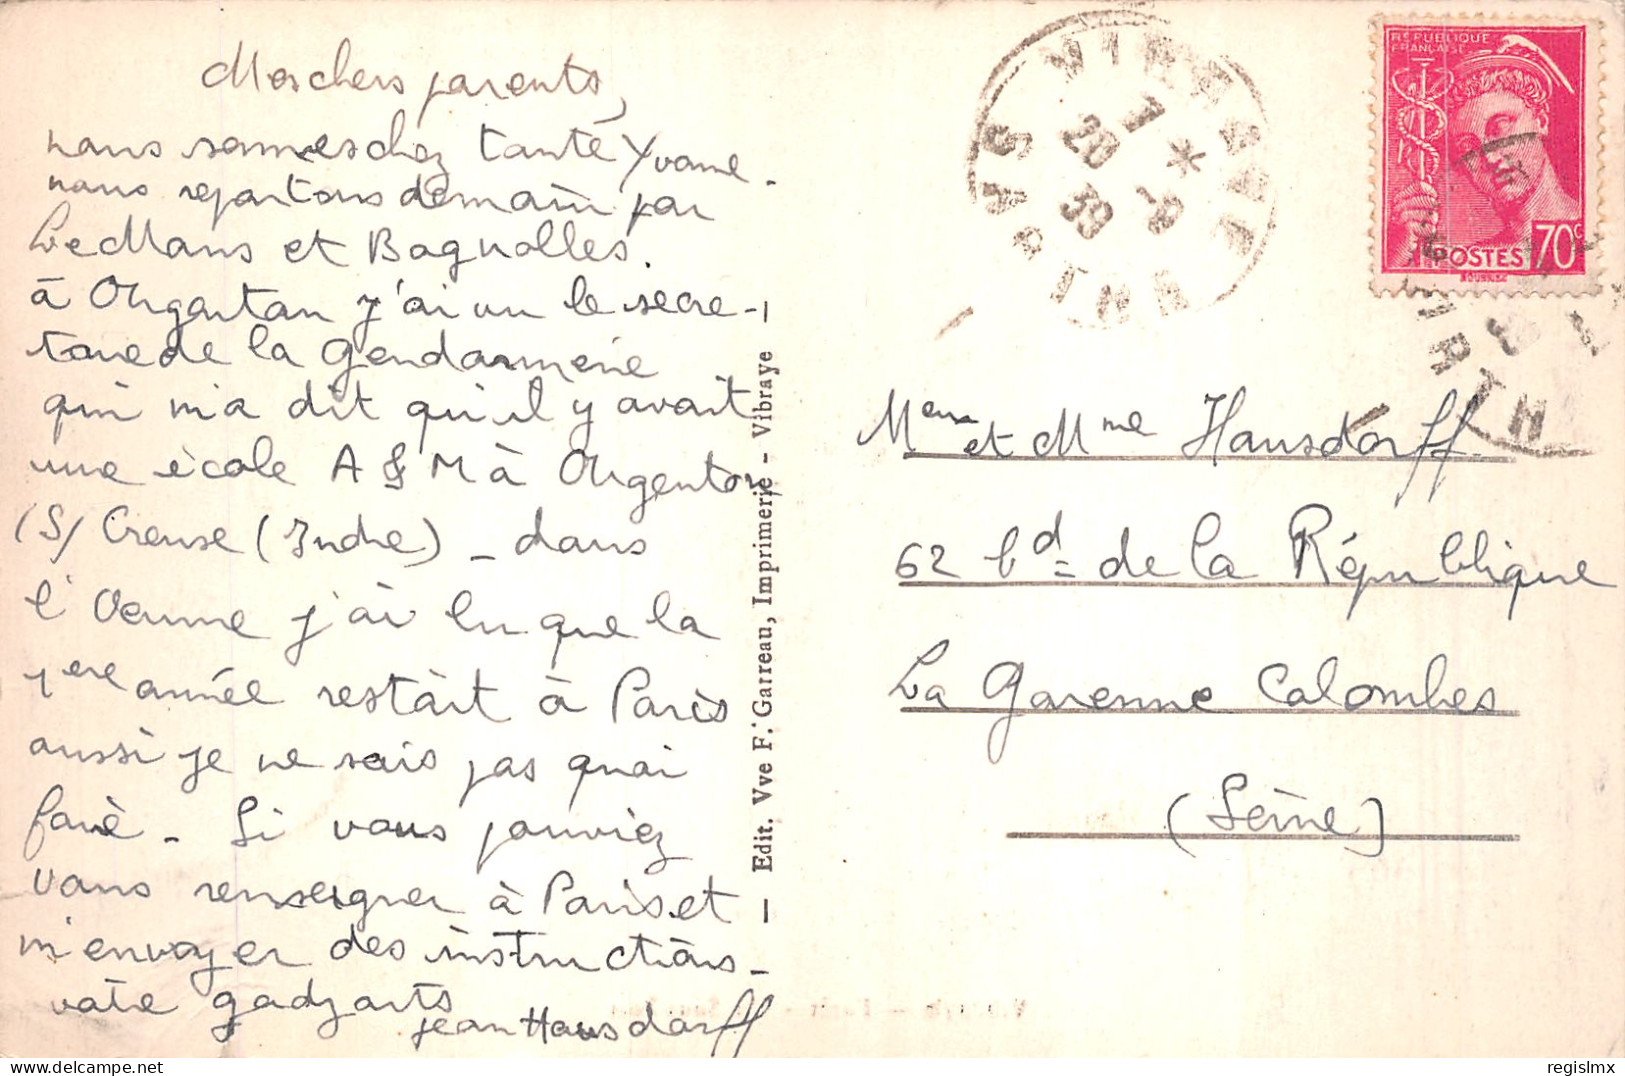 Mes chers parents,
nous sommes chez tante Yvonne.
nous repartons demain par
Le Mans et Bagnolles.
à Argentan j'ai vu le secre-
taire de la gendarmerie
qui m'a dit qu'il y avait
une école A & M à Argenton
(S/ Creuse (Indre) - dans
l'Oeuvre j'ai lu que la
1ere année restait à Paris
aussi je ne sais pas quoi
faire - Si vous pouviez
vous renseigner à Paris et
m'envoyer des instructions -
votre gadzarts
Jean Hausdorff
— Edit. Vve F. Garreau, Imprimerie - Vibraye —
VIBRAYE
7 *
20 -9
39
SARTHE
RÉPUBLIQUE
FRANÇAISE
POSTES 70c
Meur et Mme Hausdorff
62 bd de la République
La Garenne Colombes
(Seine)
regislmx